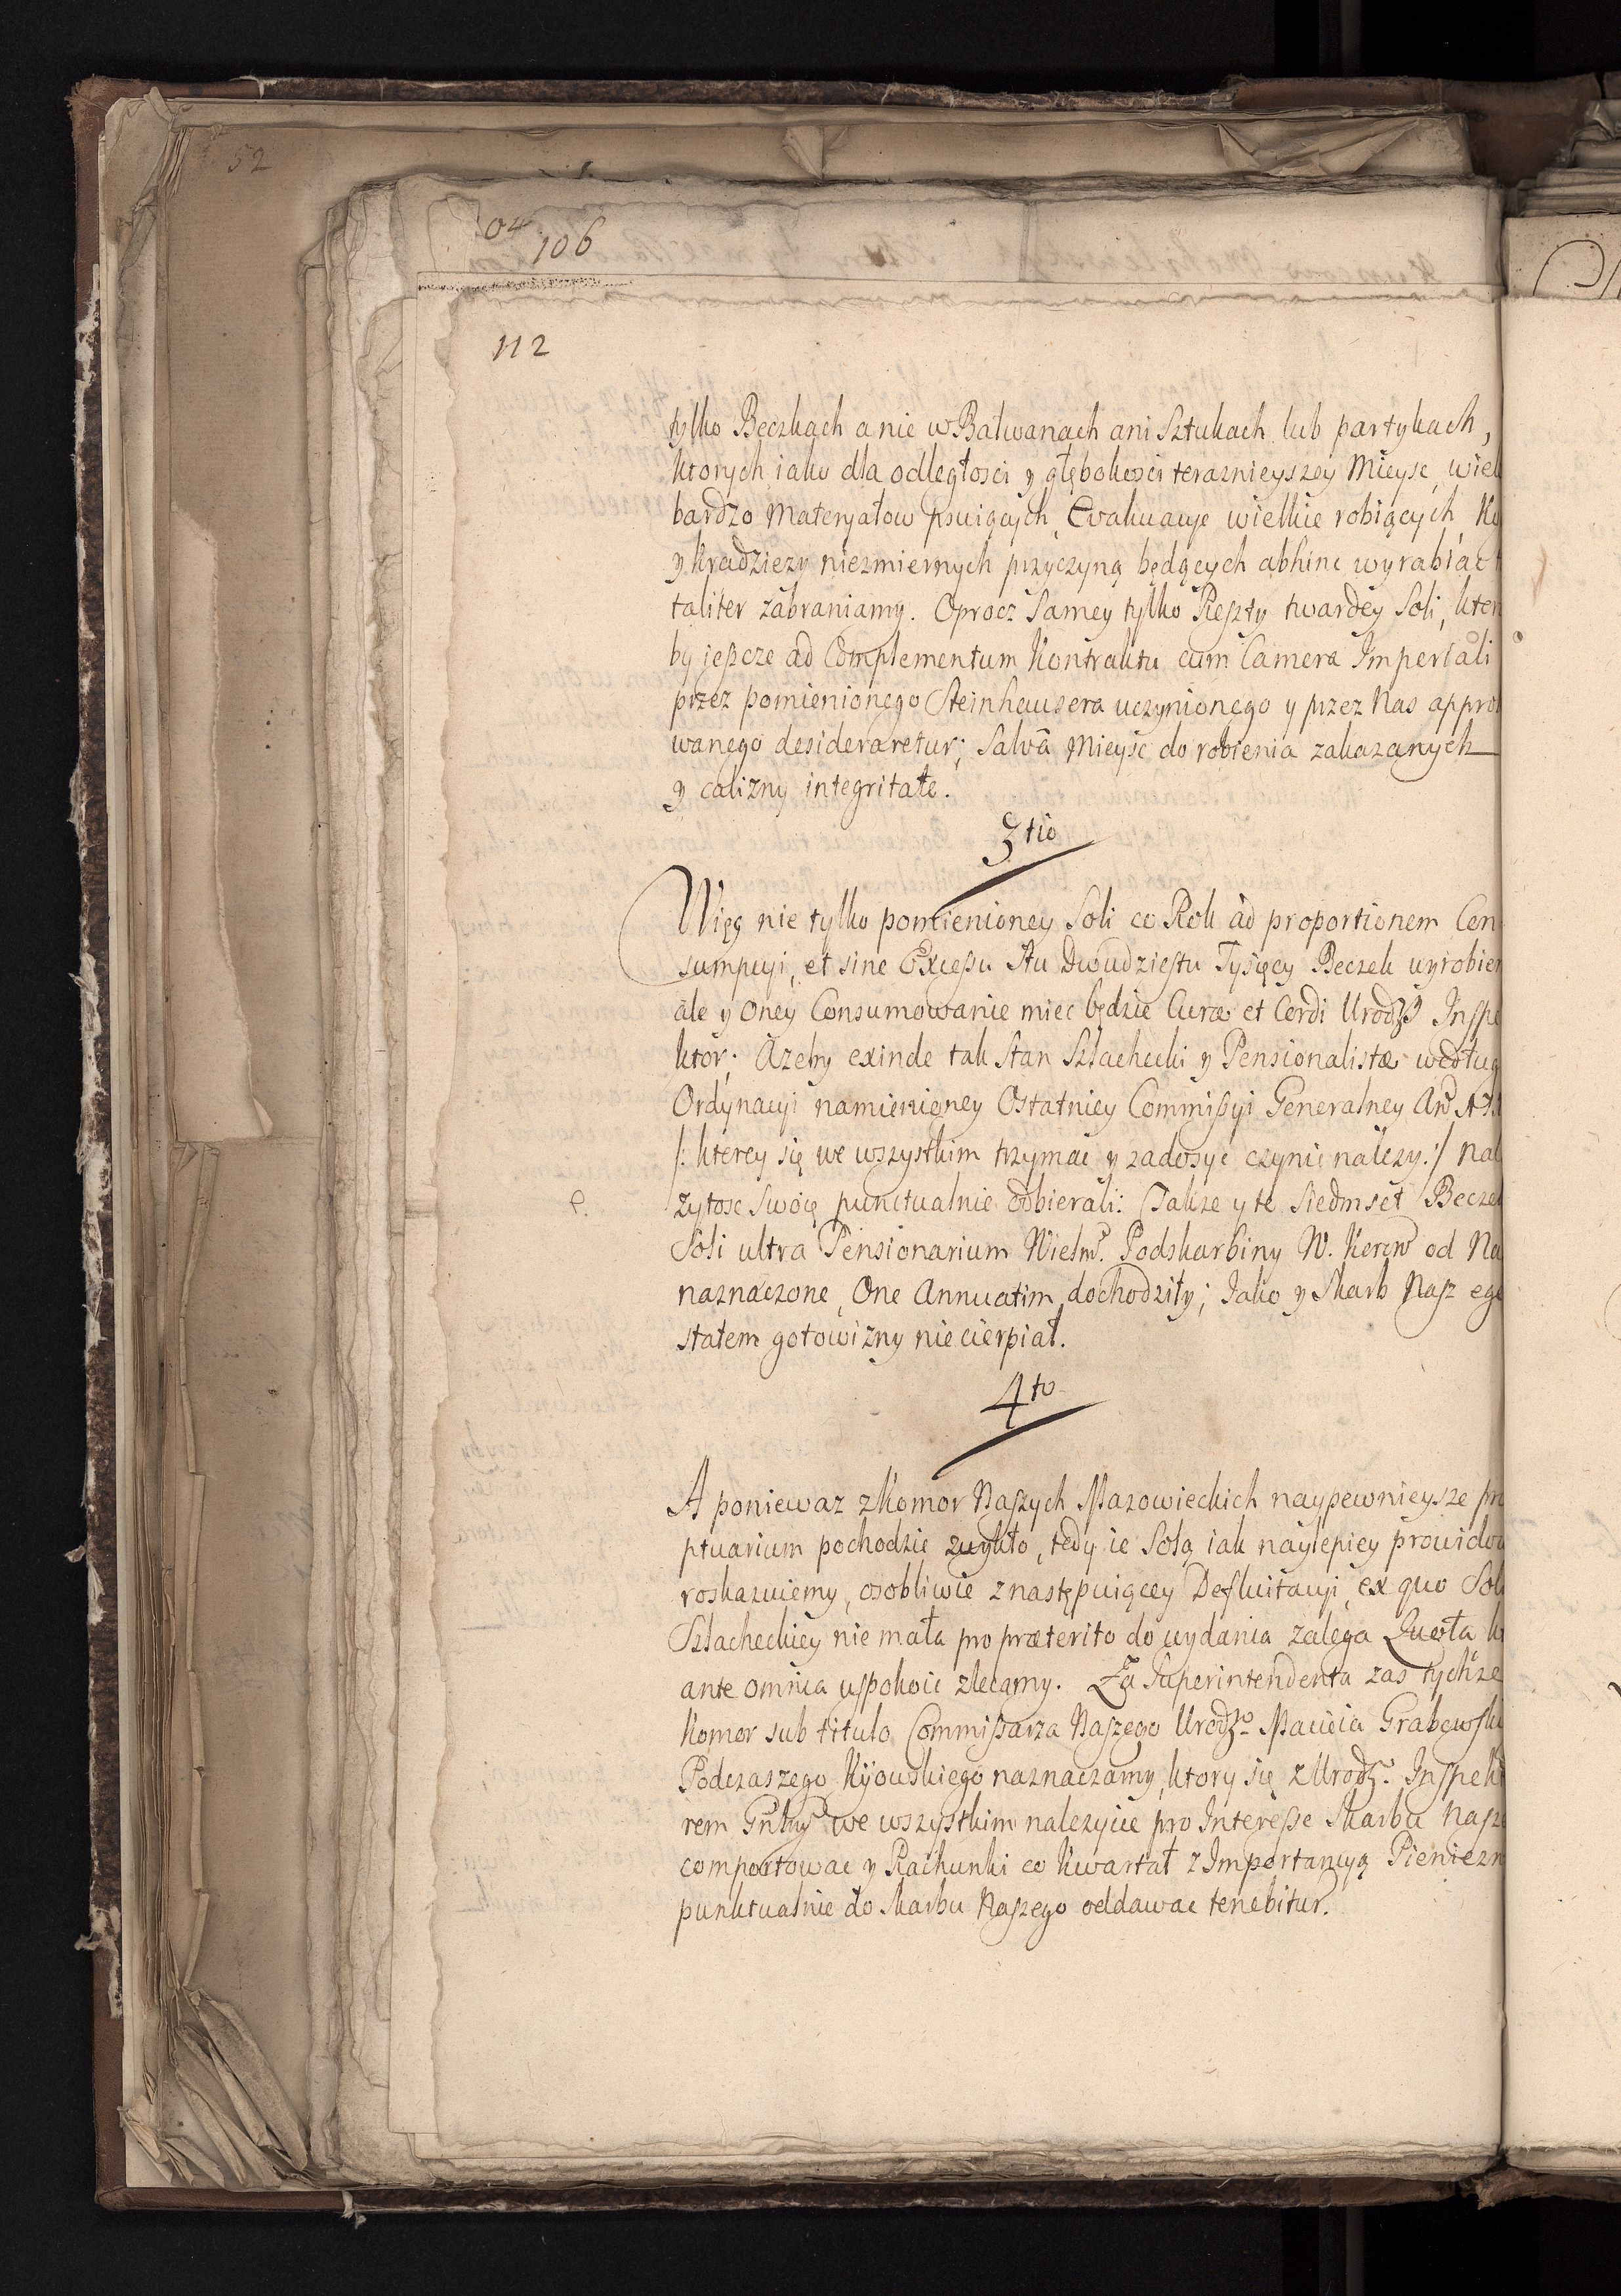 52
04
106
112
tylko Beczkach a nie w Bałwanach ani Sztukach lub partykach,
ktorych iako dla odległosci y głębokosci teraznieyszey Mieysc, wiel
bardzo Materyałow psuiących, Evakuacye wielkie robiących,
y kradziezy niezmiernych przyczyną będących abhinc wyrabiac
taliter zabraniamy. Oprocz Samey tylko Reszty twardey Soli, ktor
by jeszcze ad Complementum Kontraktu cum Camera Imperiali
przez pomienionego Steinhausera uczynionego y przez Nas appro
wanego desideraretur; Salvâ Mieysc do robienia zakazanych
y calizny integritate.
3tio
Więc nie tylko pomienioney Soli co Rok ad proportionem Con
sumpcyi, et sine Excessu Stu Dwudziestu Tysięcy Beczek wyrobien
ale y Oney Consumowanie miec będzie Curæ et Cordi Urodz Inspe
ktor; Azeby exinde tak Stan Szlachecki y Pensionalistæ według
Ordynacyi namienioney Ostatniey Commissyi Generalney
/: ktorey się we wszystkim trzymac y zadosyc czynic nalezy :/ Nal
zytosc Swoię punctualnie odbierali: Takze y te Siedmset Beczek
Soli ultra Pensionarium Wielm. Podskarbiny W. Koron od Na
naznaczone, One Annuatim dochodziły; Jako y Skarb Nasz ege
statem gotowizny nie cierpiał.
4to
A poniewaz z Komor Naszych Mazowieckich naypewnieysze pro
ptuarium pochodzic zwykło, tedy ie Solą iak naylepiey prowidow
roskazuiemy, osobliwie z następuiącey Defluitacyi, ex quo Sol
Szlacheckiey nie mała pro præterito do wydania zalega Quota k
ante omnia uspokoic zlecamy. Za Superintendenta zas tychze
Komor sub titulo Commissarza Naszego Urodzo Macieia Grabowski
Podczaszego Kijowskiego naznaczamy, ktory się z Urodz. Inspekt
rem Gnlnym we wszystkim nalezycie pro Interesse Skarbu Nasze
comportowac y Rachunki co Kwartał z Importancyą Pieniezn
punktualnie do Skarbu Naszego oddawac tenebitur.